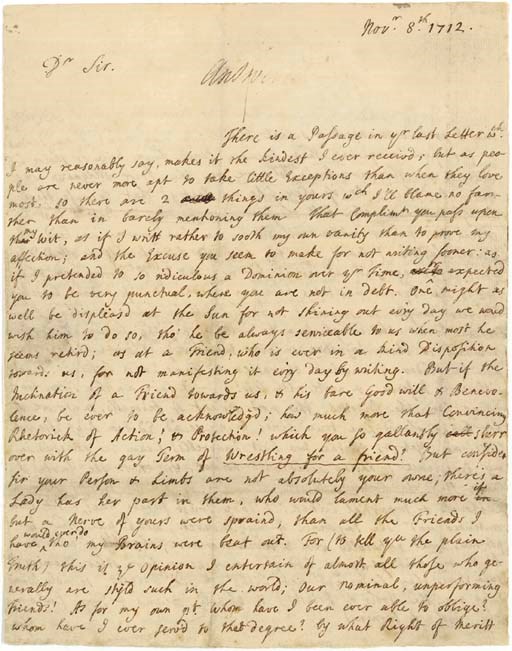 Nov.r 8.th 1712.
Dr Sir.
There is a Passage in yr last Letter wch.
I may reasonably say, makes it the kindest I ever receivd; but as peo-
ple are never more apt to take little Exceptions than when they love
most. so there are 2 things in yours wch I'll blame no far-
ther than in barely mentioning them That Complimt. you pass upon
my Wit, as if I writt rather to sooth my own vanity than to prove my
affection; and the Excuse you seem to make for not writing sooner: as
if I pretended to so ridiculous a Dominion over yr Time, expected
you to be very punctual, where you are not in debt. One might as
well be displeasd at the Sun for not shining out evry day we woud
wish him to do so, tho' he be always serviceable to us when most he
seems retird; as at a Friend, who is ever in a kind Disposition
towards us, for not manifesting it evry day by writing. But if the
Inclination of a Friend towards us, & his bare Good will & Benevo-
lence, be ever to be acknowledgd; how much more that Convincing
Rhetorick of Action; & Protection! which you so gallantly slurr
over with the gay Term of Wrestling for a friend! But consider
sir your Person & Limbs are not absolutely your owne; there's a
Lady has her part in them, who would lament much more if
but a Nerve of yours were spraind, than all the Friends I
have, would ever do tho' my Brains were beat out. For (to tell you the plain
Truth) this is ye Opinion I entertain of almost all those who ge-
nerally are styld such in the world; Our nominal, unperforming
friends! As for my own pt. whom have I been ever able to oblige?
whom have I ever servd to that degree? by what Right of Meritt